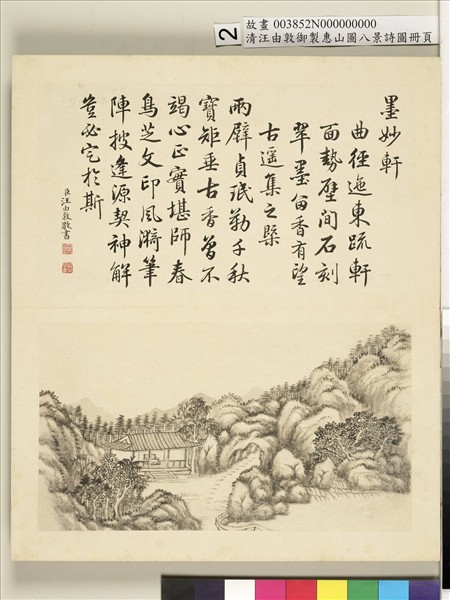 2
故畫 003852N000000000
清汪由敦御製惠山園八景詩圖冊頁
墨妙軒
曲徑迤東疏軒
面勢壁間石刻
翠墨留香有望
古遥集之槩
兩壁貞珉勒千秋
寶矩垂古香曾不
竭心正實堪師春
鳥芝文印風漪筆
陣披逢源契神解
豈必定於斯
臣汪由敦敬書